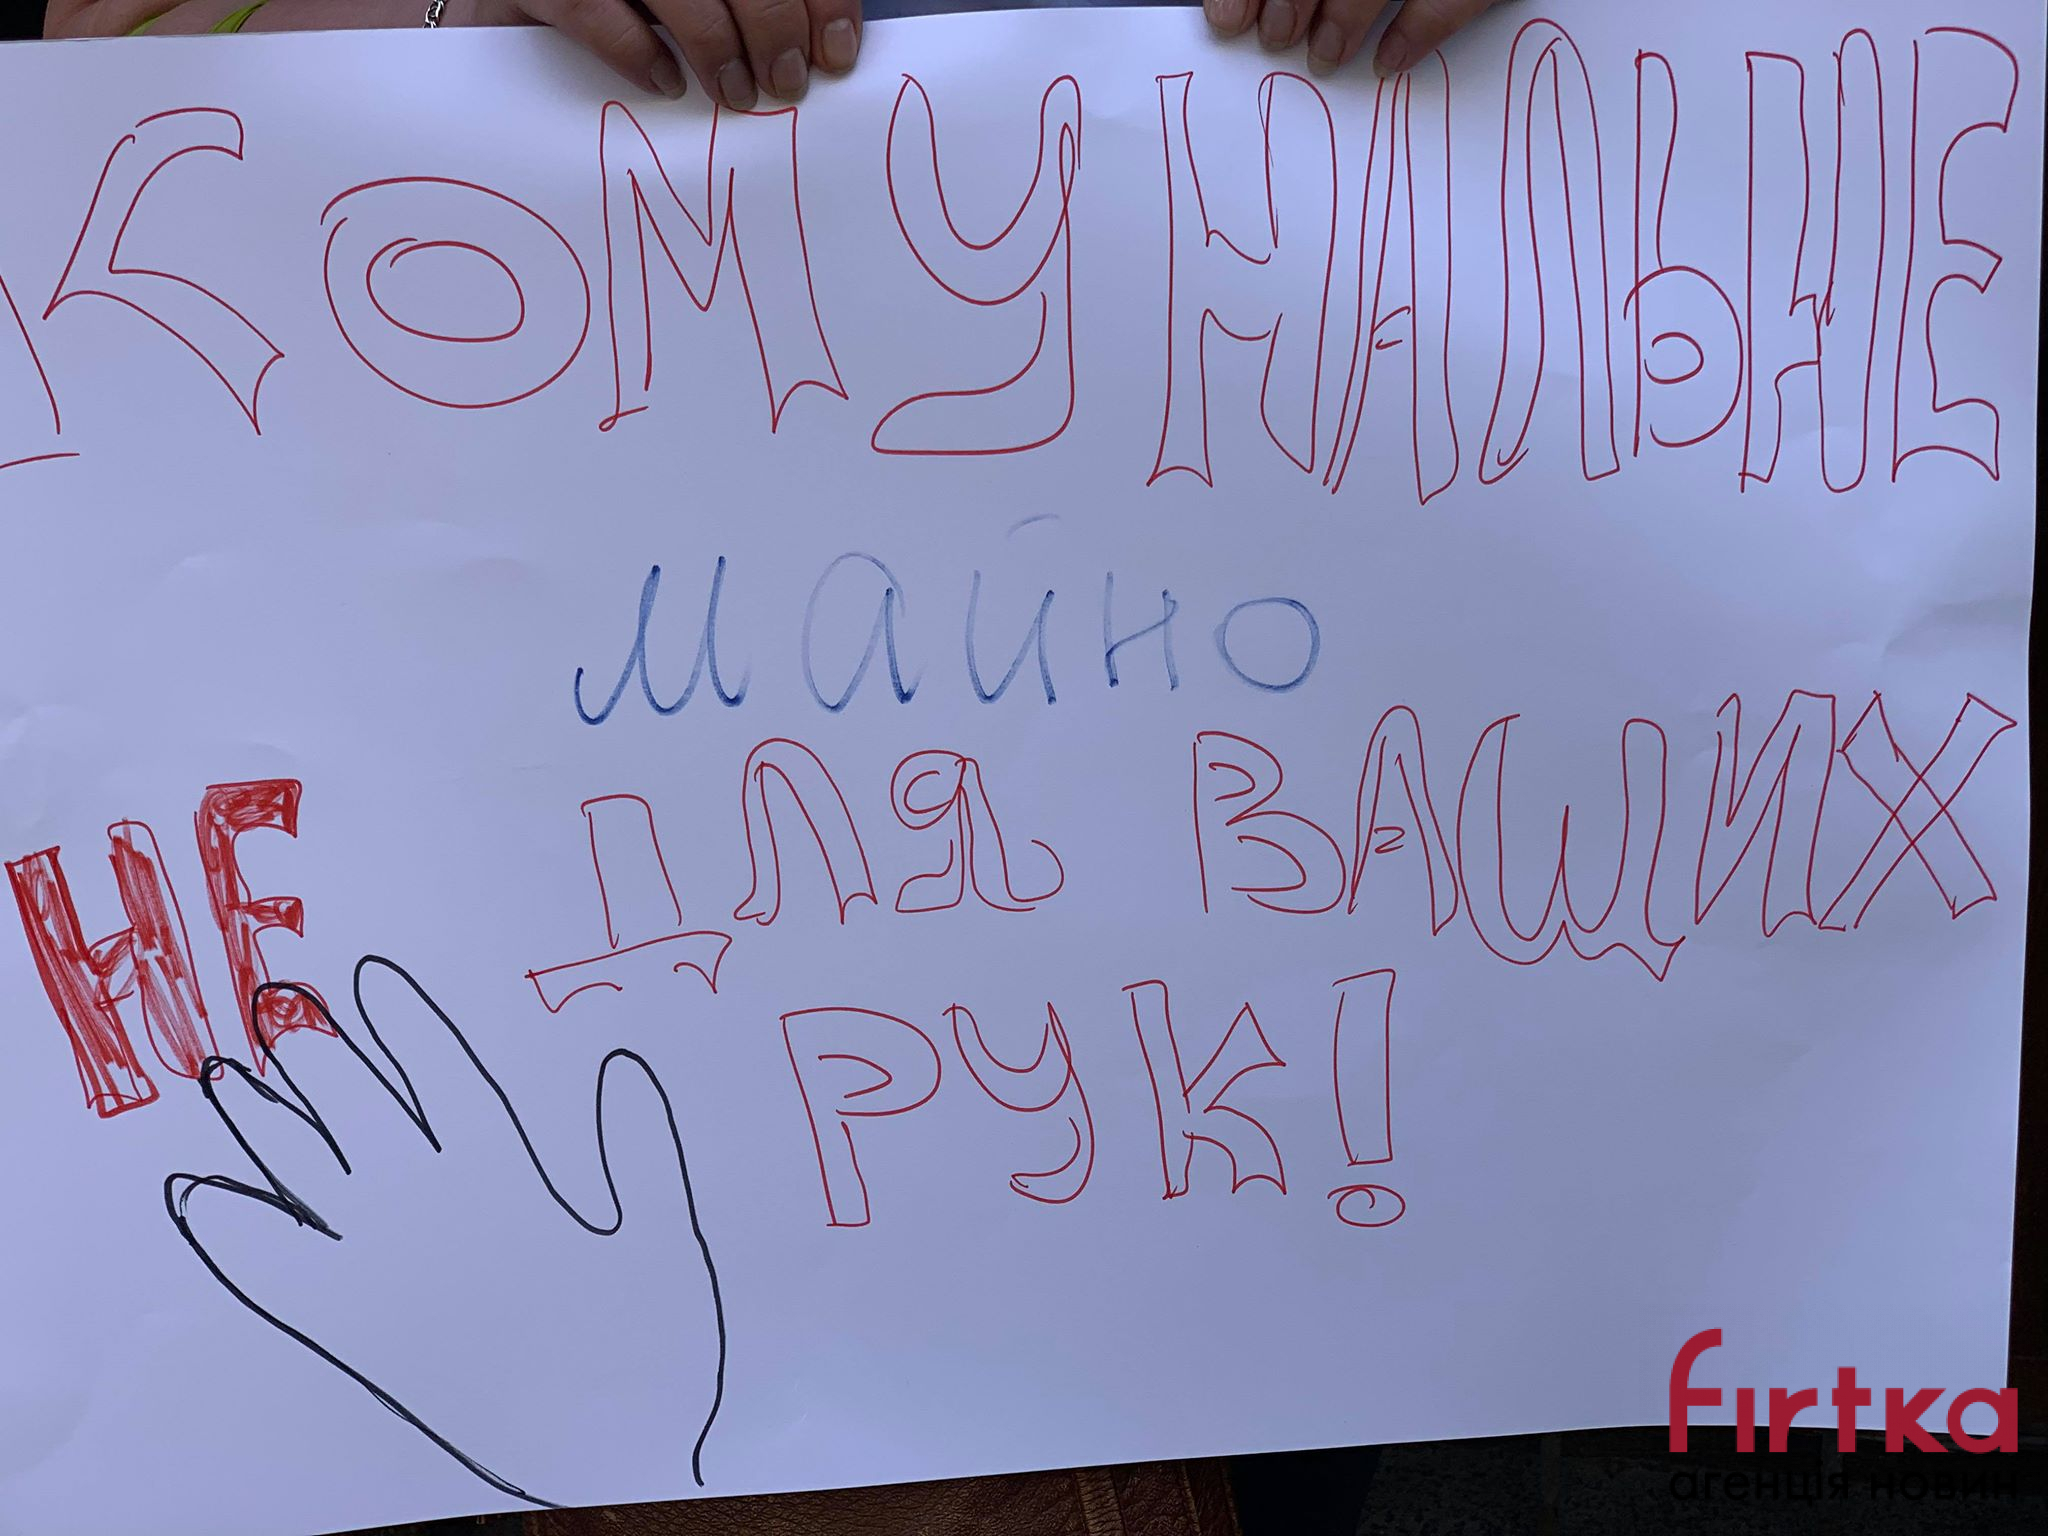 КОМУНАЛЬНЕ
майно
НЕ ДЛЯ ВАШИХ
РУК!
fırtka
агенція новин